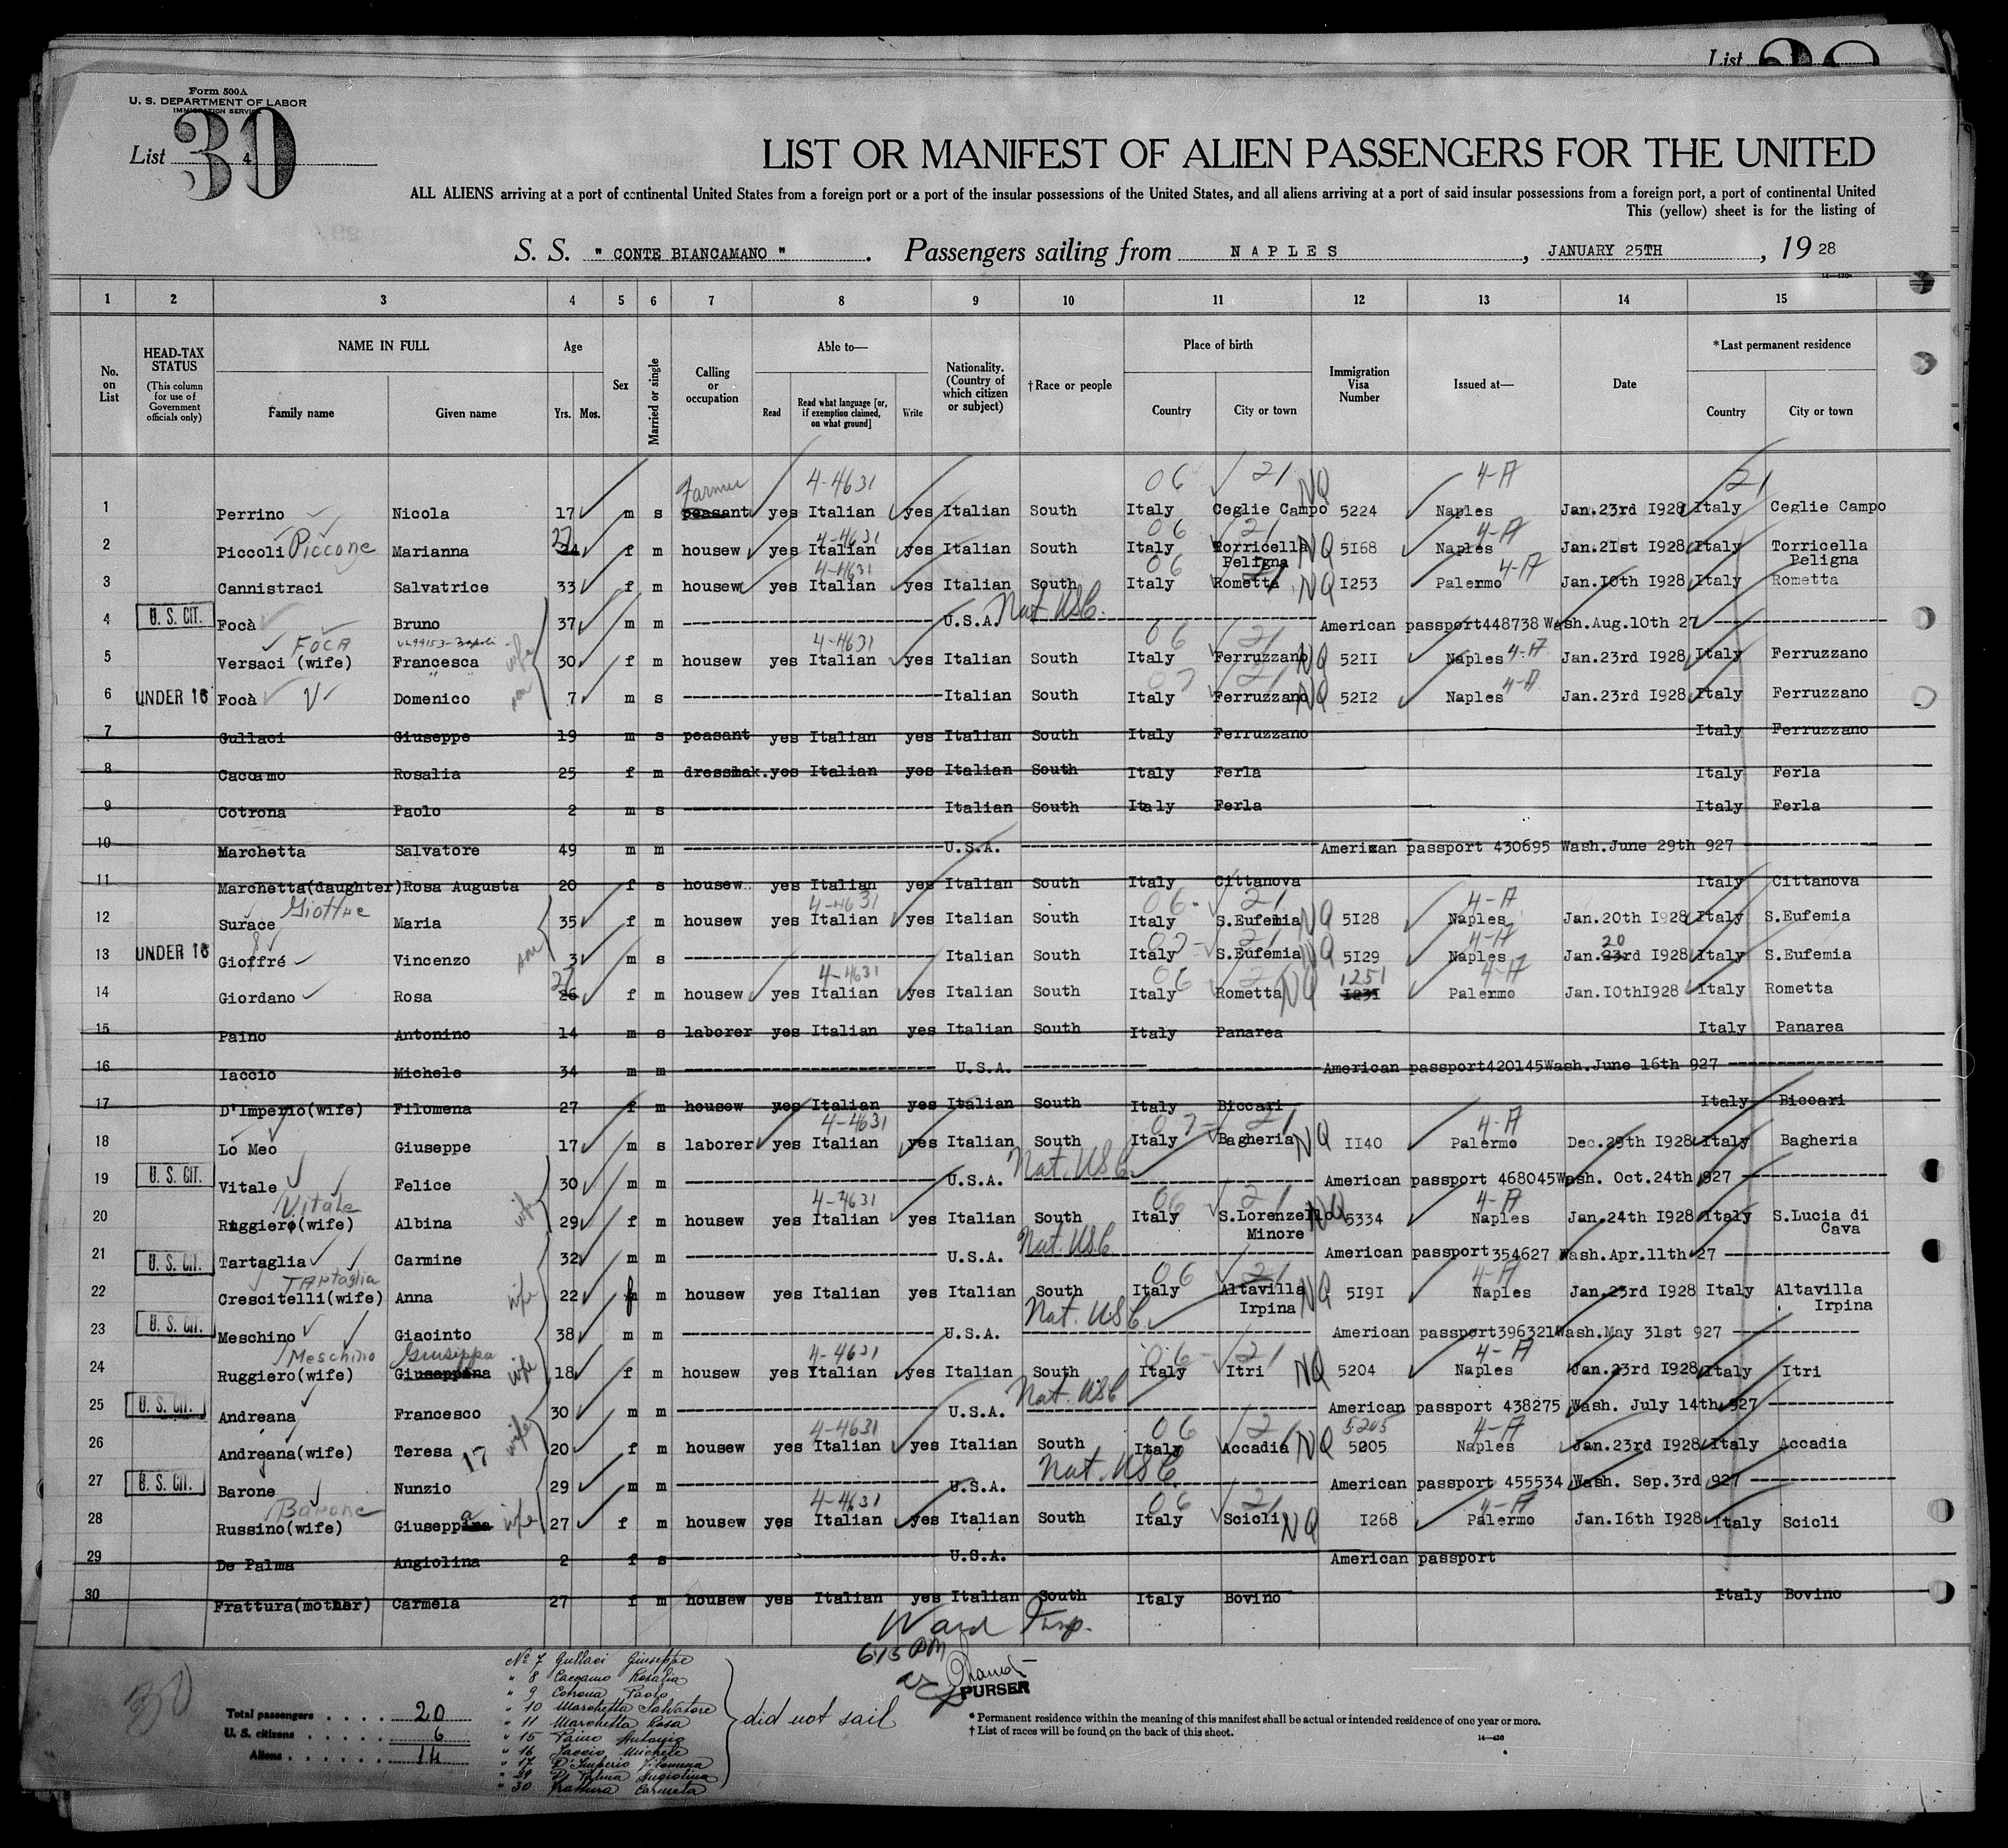 List
Form 500A
U. S. DEPARTMENT OF LABOR
IMMIGRATION SERVICE
List 4
30
LIST OR MANIFEST OF ALIEN PASSENGERS FOR THE UNITED
ALL ALIENS arriving at a port of continental United States from a foreign port or a port of the insular possessions of the United States, and all aliens arriving at a port of said insular possessions from a foreign port, a port of continental United
This (yellow) sheet is for the listing of
S. S. " CONTE BIANCAMANO " . Passengers sailing from NAPLES , JANUARY 25TH , 19 28
1 2 3 4 5 6 7 8 9 10 11 12 13 14 15
No. on List
HEAD-TAX STATUS (This column for use of Government officials only)
NAME IN FULL
Family name Given name
Age Yrs. Mos.
Sex
Married or single
Calling or occupation
Able to— Read Read what language [or, if exemption claimed, on what ground] Write
Nationality. (Country of which citizen or subject)
†Race or people
Place of birth Country City or town
Immigration Visa Number
Issued at—
Date
*Last permanent residence Country City or town
Farmer 4-4631 06 21 NQ 4-A 21
1 Perrino Nicola 17 m s peasant yes Italian yes Italian South Italy Ceglie Campo 5224 Naples Jan.23rd I928 Italy Ceglie Campo
27 4-4631 06 21 4-A
2 Piccoli Piccone Marianna 24 f m housew yes Italian yes Italian South Italy Torricella Peligna NQ 5I68 Naples Jan.2Ist I928 Italy Torricella Peligna
4-4631 06 21 4-A
3 Cannistraci Salvatrice 33 f m housew yes Italian yes Italian South Italy Rometta NQ I253 Palermo Jan.I0th I928 Italy Rometta
4 U. S. CIT. Focà Bruno 37 m m U.S.A. Nat. USC. American passport448738 Wash.Aug.10th 27
FOCA 4-4631 06 21
5 Versaci (wife) Francesca wife 30 f m housew yes Italian yes Italian South Italy Ferruzzano NQ 52II Naples 4-A Jan.23rd I928 Italy Ferruzzano
6 UNDER 16 Focà Domenico son 7 m s Italian South 07 21 Italy Ferruzzano NQ 52I2 Naples 4-A Jan.23rd I928 Italy Ferruzzano
7 Gullaci Giuseppe 19 m s peasant yes Italian yes Italian South Italy Ferruzzano Italy Ferruzzano
8 Caccamo Rosalia 25 f m dressmak. yes Italian yes Italian South Italy Ferla Italy Ferla
9 Cotrona Paolo 2 m s Italian South Italy Ferla Italy Ferla
10 Marchetta Salvatore 49 m m U.S.A. American passport 430695 Wash.June 29th 927
11 Marchetta(daughter)Rosa Augusta 20 f s housew. yes Italian yes Italian South Italy Cittanova Italy Cittanova
Gioffre 4-4631 06 21 4-A
12 Surace Maria 35 f m housew yes Italian yes Italian South Italy S.Eufemia NQ 5I28 Naples Jan.20th I928 Italy S.Eufemia
07 21 4-A 20
13 UNDER 16 Gioffré Vincenzo son 3 m s Italian South Italy S.Eufemia NQ 5I29 Naples Jan.23rd I928 Italy S.Eufemia
27 4-4631 06 2 1251 4-A
14 Giordano Rosa 26 f m housew yes Italian yes Italian South Italy Rometta NQ I23I Palermo Jan.I0thI928 Italy Rometta
15 Paino Antonino 14 m s laborer yes Italian yes Italian South Italy Panarea Italy Panarea
16 Iaccio Michele 34 m m U.S.A. American passport420145Wash.June 16th 927
17 D'Imperio(wife) Filomena 27 f m housew yes Italian yes Italian South Italy Biccari Italy Biccari
4-4631 07 21 4-A
18 Lo Meo Giuseppe 17 m s laborer yes Italian yes Italian South Italy Bagheria NQ II40 Palermo Dec.29th I928 Italy Bagheria
19 U. S. CIT. Vitale Felice 30 m m U.S.A. Nat. USC. American passport 468045Wash. Oct.24th 927
Vitale 4-4631 06 21 4-A
20 Ruggiero(wife) Albina wife 29 f m housew yes Italian yes Italian South Italy S.Lorenzello Minore NQ 5334 Naples Jan.24th I928 Italy S.Lucia di Cava
21 U. S. CIT. Tartaglia Carmine 32 m m U.S.A. Nat. USC American passport 354627 Wash.Apr.11th 27
TARtaglia 06 21 4-A
22 Crescitelli(wife) Anna wife 22 f m housew yes Italian yes Italian South Italy Altavilla Irpina NQ 5I9I Naples Jan.23rd I928 Italy Altavilla Irpina
23 U. S. CIT. Meschino Giacinto 38 m m U.S.A. Nat. USC. American passport396321Wash.May 31st 927
Meschino Giuseppa 4-4631 06 21 4-A
24 Ruggiero(wife) Giuseppina wife 18 f m housew yes Italian yes Italian South Italy Itri NQ 5204 Naples Jan.23rd I928 Italy Itri
25 U. S. CIT. Andreana Francesco 30 m m U.S.A. Nat. USC American passport 438275 Wash. July 14th 927
4-4631 06 2 5205 4-A
26 Andreana(wife) Teresa 17 wife 20 f m housew yes Italian yes Italian South Italy Accadia NQ 5005 Naples Jan.23rd I928 Italy Accadia
27 U. S. CIT. Barone Nunzio 29 m m U.S.A. Nat. USC. American passport 455534 Wash. Sep.3rd 927
Barone a 4-4631 06 21 4-A
28 Russino(wife) Giuseppina wife 27 f m housew yes Italian yes Italian South Italy Scicli NQ I268 Palermo Jan.I6th I928 Italy Scicli
29 De Palma Angiolina 2 f s U.S.A. American passport
30 Frattura(mother) Carmela 27 f m housew yes Italian yes Italian South Italy Bovino Italy Bovino
Ward Insp.
6:15 PM
PURSER
No 7 Gullaci Giuseppe
" 8 Caccamo Rosalia
" 9 Cotrona Paolo
" 10 Marchetta Salvatore
" 11 Marchetta Rosa
" 15 Paino Antonio
" 16 Iaccio Michele
" 17 D'Imperio Filomena
" 29 D. Palma Angiolina
" 30 Frattura Carmela
did not sail
30
Total passengers . . . . 20
U. S. citizens . . . . . 6
Aliens . . . . . . 14
* Permanent residence within the meaning of this manifest shall be actual or intended residence of one year or more.
† List of races will be found on the back of this sheet.
14—430